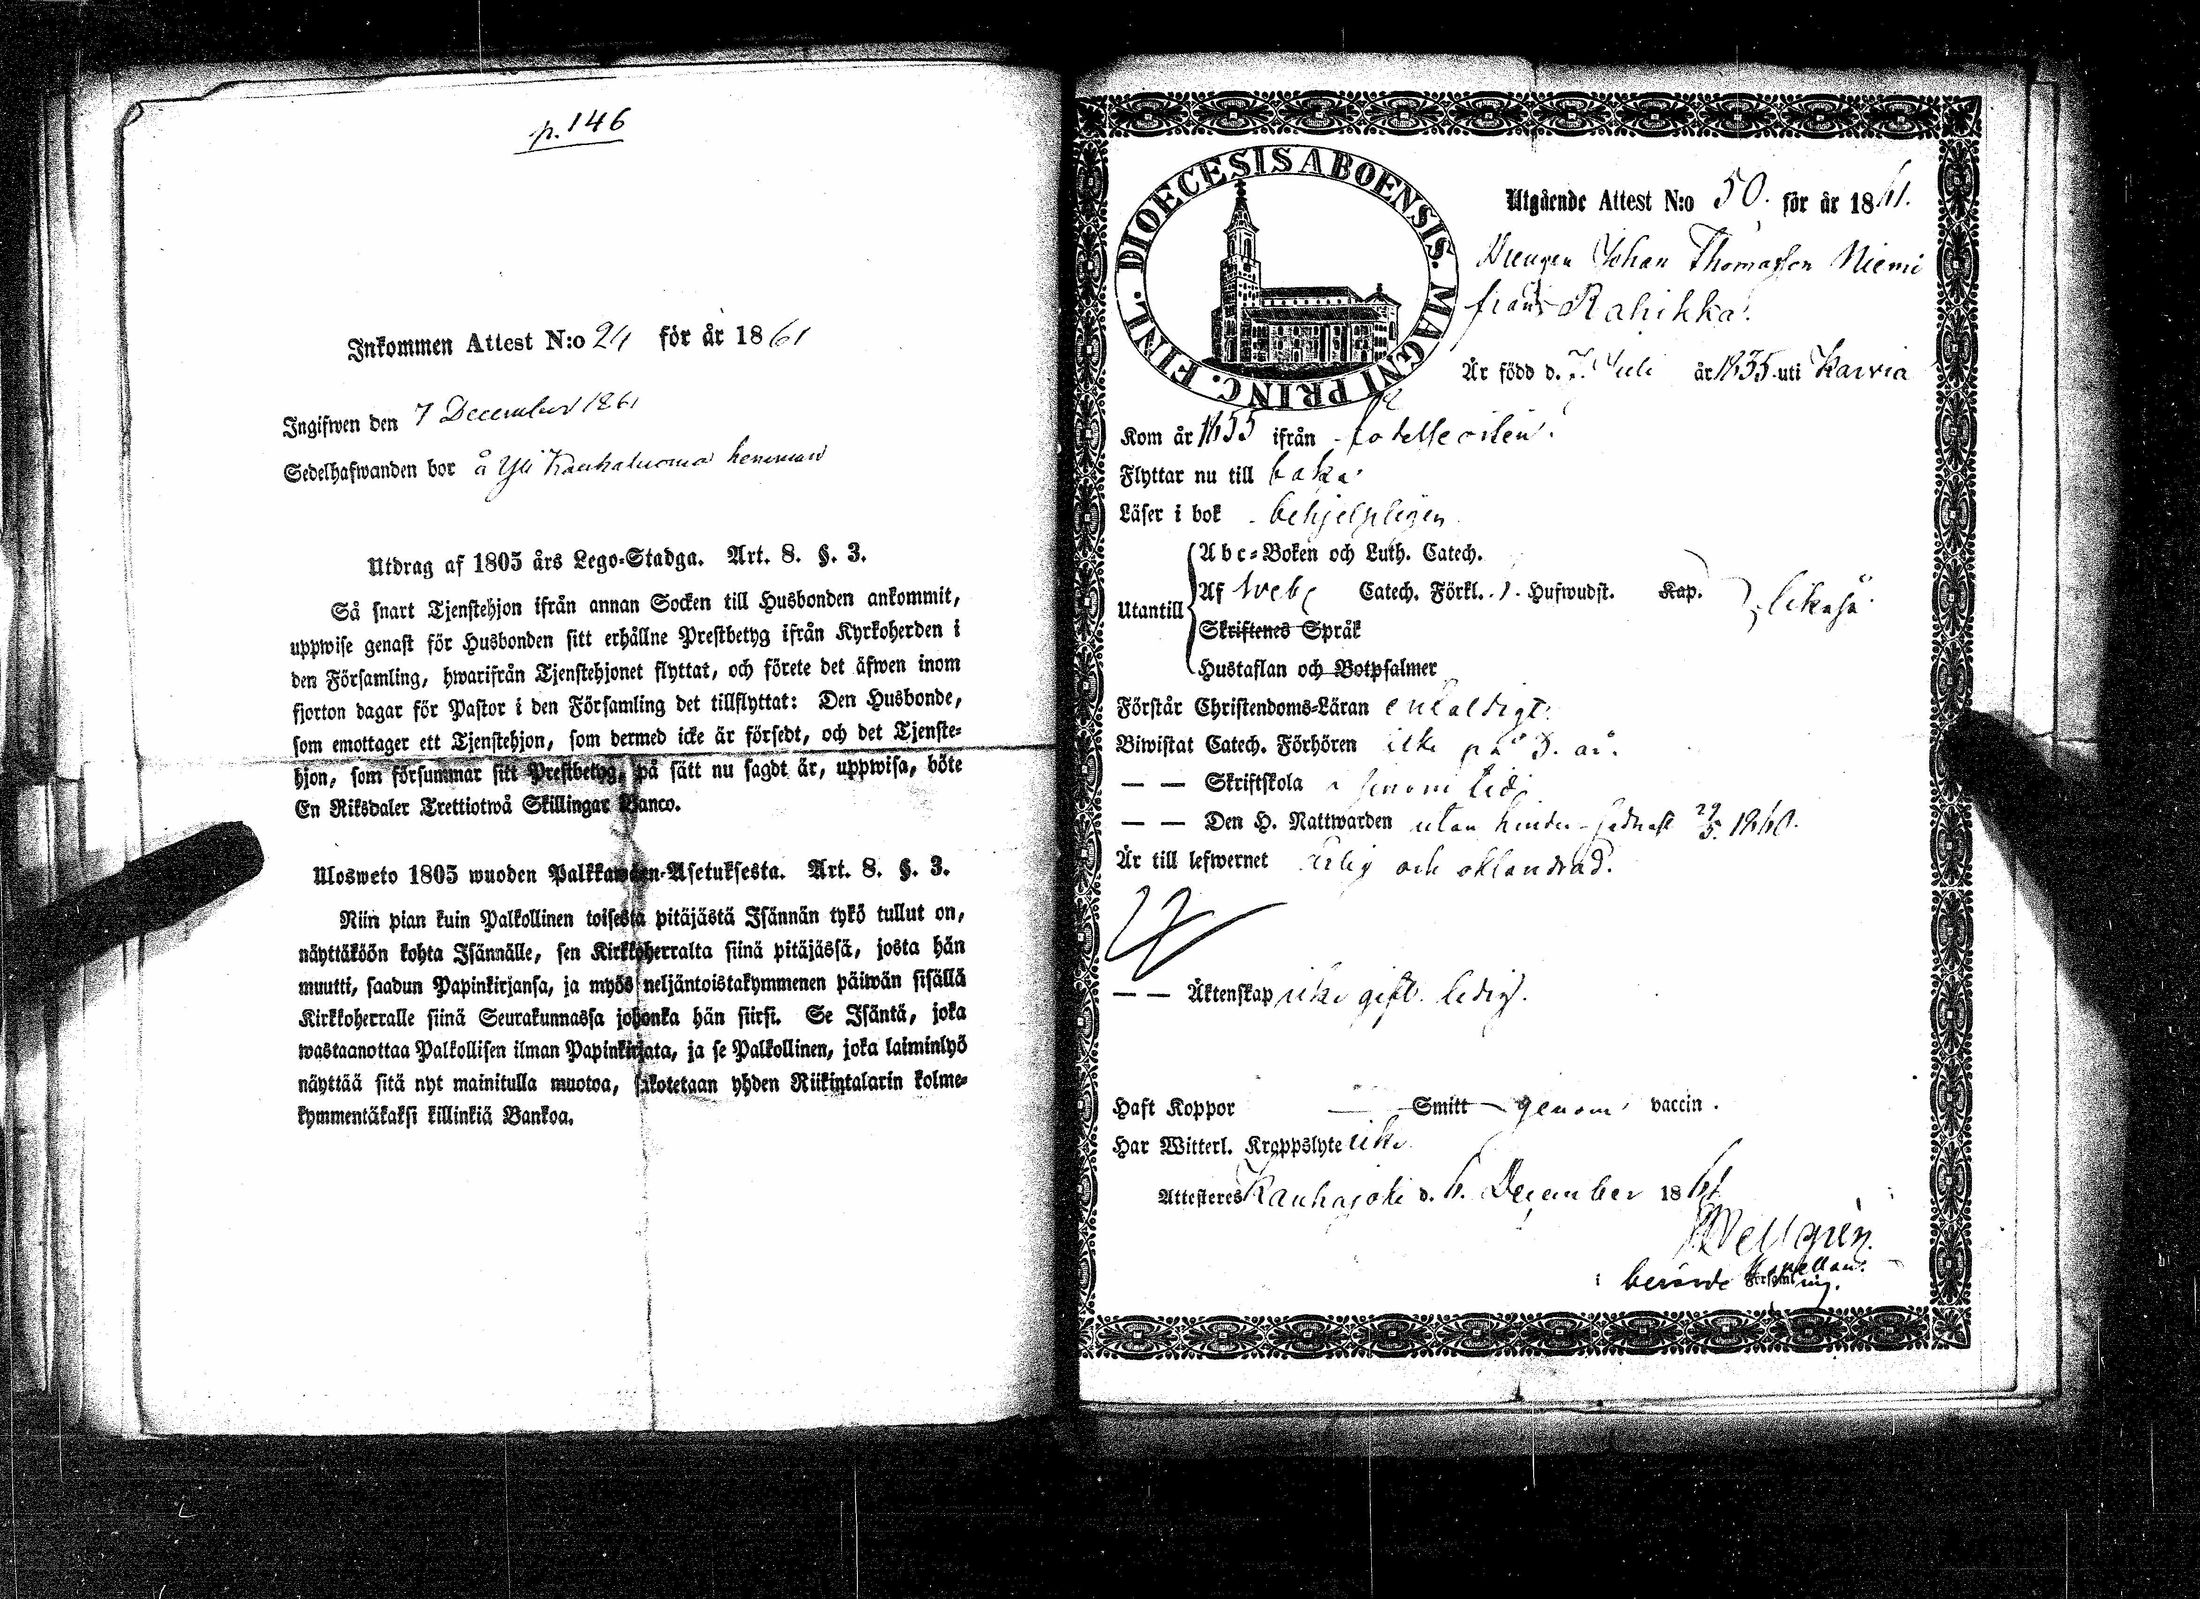 p. 146
Inkommen Attest N:o 24 för år 1861
Ingifwen den 7 December 1861
Sedelhafwanden bor å Yli Kauhaluoma hemman
Utdrag af 1805 års Lego-Stadga. Art. 8. §. 3.
Så snart Tjenstehjon ifrån annan Socken till Husbonden ankommit,
uppwise genast för Husbonden sitt erhållne Prestbetyg ifrån Kyrkoherden i
den Församling, hwarifrån Tjenstehjonet flyttat, och förete det äfwen inom
fjorton dagar för Pastor i den Församling det tillflyttat: Den Husbonde,
som emottager ett Tjenstehjon, som dermed icke är försedt, och det Tjenste-
hjon, som försummar sitt Prestbetyg, på sätt nu sagdt är, uppwisa, böte
En Riksdaler Trettiotwå Skillingar Banco.
Ulosweto 1805 wuoden Palkkawäen-Asetuksesta. Art. 8. §. 3.
Niin pian kuin Palkollinen toisesta pitäjästä Isännän tykö tullut on,
näyttäköön kohta Isännälle, sen Kirkkoherralta siinä pitäjässä, josta hän
muutti, saadun Papinkirjansa, ja myös neljäntoistakymmenen päiwän sisällä
Kirkkoherralle siinä Seurakunnassa johonka hän siirsi. Se Isäntä, joka
wastaanottaa Palkollisen ilman Papinkirjata, ja se Palkollinen, joka laiminlyö
näyttää sitä nyt mainitulla muotoa, sakotetaan yhden Riikintalarin kolme-
kymmentäkaksi killinkiä Bankoa.
DIOECESIS ABOENSIS. MAGNI PRINC. FINL.
Utgående Attest N:o 50. för år 1861.
Drengen Johan Thomasson Niemi
från Rahikka.
Är född d. 7 Juli år 1835 uti Karvia
Kom år 1855 ifrån
Flyttar nu till
Läser i bok behjelpligen
Abc-Boken och Luth. Catech.
Utantill Af Sveb. Catech. Förkl. Hufwudst. Kap. likaså
Skriftenes Språk
Hustaflan och Botpsalmer
Förstår Christendoms-Läran enfaldigt.
Biwistat Catech. Förhören icke på 3. år.
— — Skriftskola i sinom tid
— — Den H. Nattwarden utan hinder sednast 29/5. 1860.
Är till lefwernet ärlig och oklandrad.
— — Äktenskap icke gift. ledig.
Haft Koppor — Smitt genom vaccin.
Har Witterl. Kroppslyte icke
Attesteres Kauhajoki d. 6. December 1861
Wellgrén.
Kapellan.
i berörde Församling.